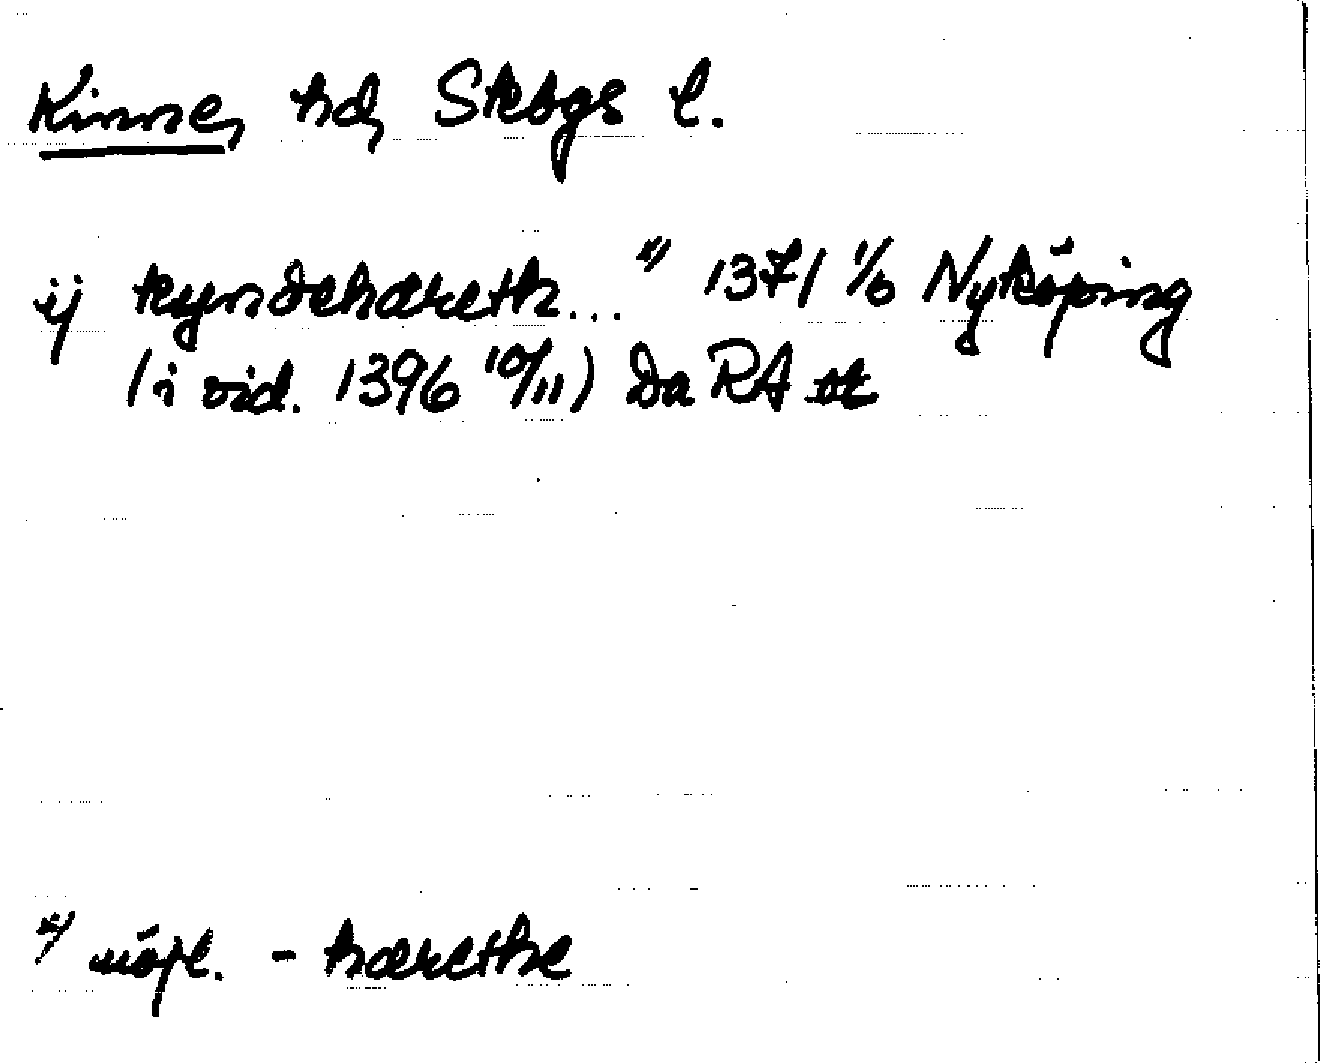 Kinne, hd, Skbgs l.
ij kyndehæreth... x) 1371 1/6 Nyköping
(i vid. 1396 10/11) Da RA
x) möjl. - hærethe